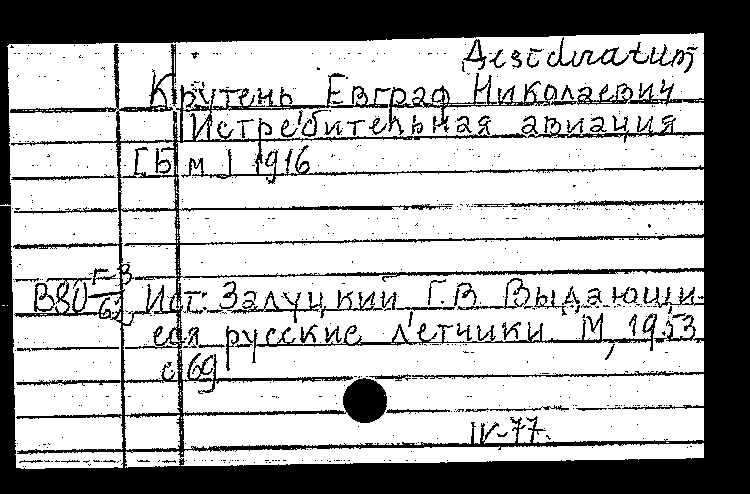 Desideratum
Крутень Евграф Николаевич
Истребительная авиация
[Б м] 1916
В80 Г-3/62 Ист: Залуцкий, Г.В. Выдающи-
еся русские летчики. М, 1953
с 69
IV-77.